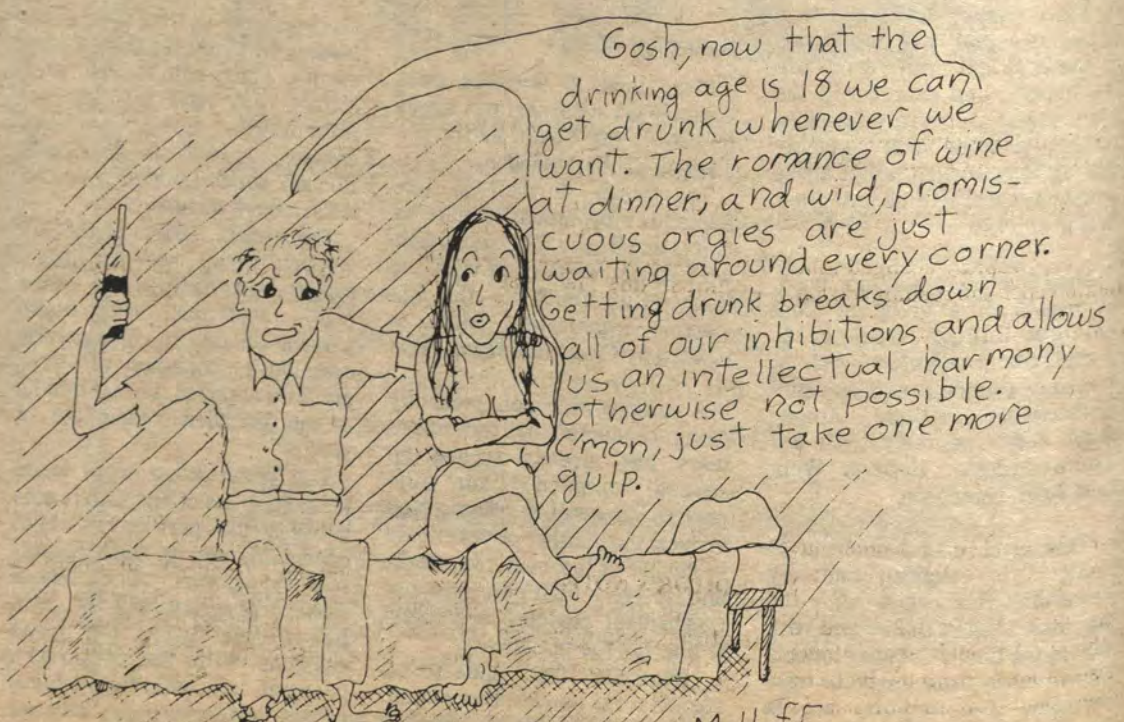 Gosh, now that the
drinking age is 18 we can
get drunk whenever we
want. The romance of wine
at dinner, and wild, promis-
cuous orgies are just
waiting around every corner.
Getting drunk breaks down
all of our inhibitions and allows
us an intellectual harmony
otherwise not possible.
C'mon, just take one more
gulp.
M. Huff